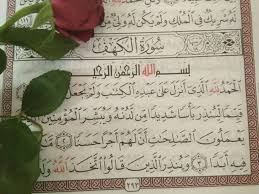 شَرِيكٌ فِي ٱلْمُلْكِ وَلَمْ يَكُن لَّهُۥ
سُورَةُ الكَهْفِ
بِسْمِ ٱللَّهِ ٱلرَّحْمَٰنِ ٱلرَّحِيمِ
ٱلْحَمْدُ لِلَّهِ ٱلَّذِىٓ أَنزَلَ عَلَىٰ عَبْدِهِ ٱلْكِتَٰبَ وَلَمْ يَجْعَل
قَيِّمًا لِّيُنذِرَ بَأْسًا شَدِيدًا مِّن لَّدُنْهُ وَيُبَشِّرَ ٱلْمُؤْمِنِينَ
يَعْمَلُونَ ٱلصَّٰلِحَٰتِ أَنَّ لَهُمْ أَجْرًا حَسَنًا ٢
فِيهِ أَبَدًا ٣ وَيُنذِرَ ٱلَّذِينَ قَالُوا۟ ٱتَّخَذَ ٱللَّهُ وَلَدًا
٢٩٣